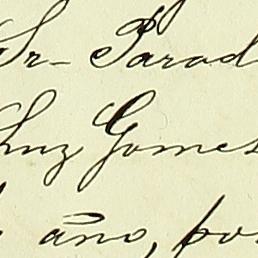 Sr- Parad
Luz Gomes
año, por